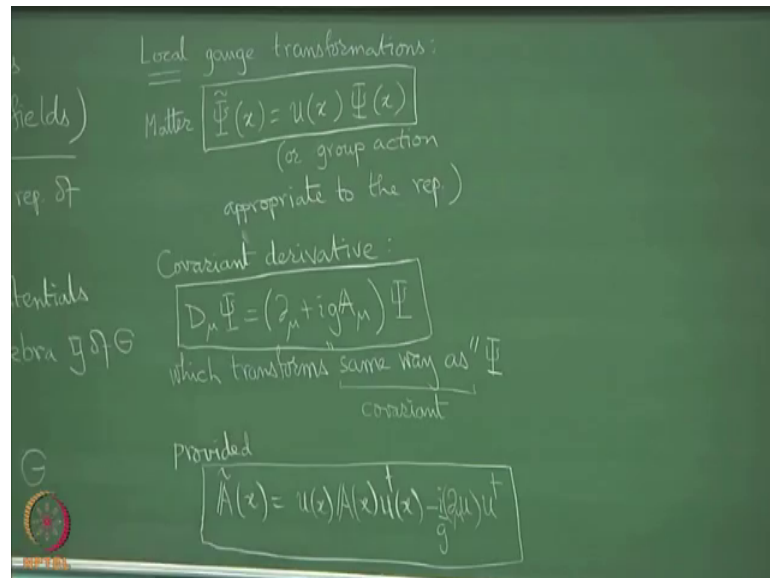 s
fields)
rep. of
tentials
ebra g of G
G
NPTEL
Local gauge transformations:
Matter Ψ̃(x) = u(x) Ψ(x)
(or group action
appropriate to the rep.)
Covariant derivative:
D_μ Ψ = (∂_μ + ig𝔸_μ) Ψ
which transforms "same way as" Ψ
covariant
provided
𝔸̃(x) = u(x) 𝔸(x) u†(x) − i/g (∂u) u†